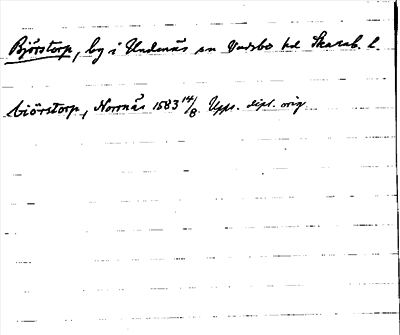 Björstorp, by i Undenäs sn Vadsbo hd Skarab. l
biörstorp, Norrnäs 1583 14/8 Upps. dipl. orig